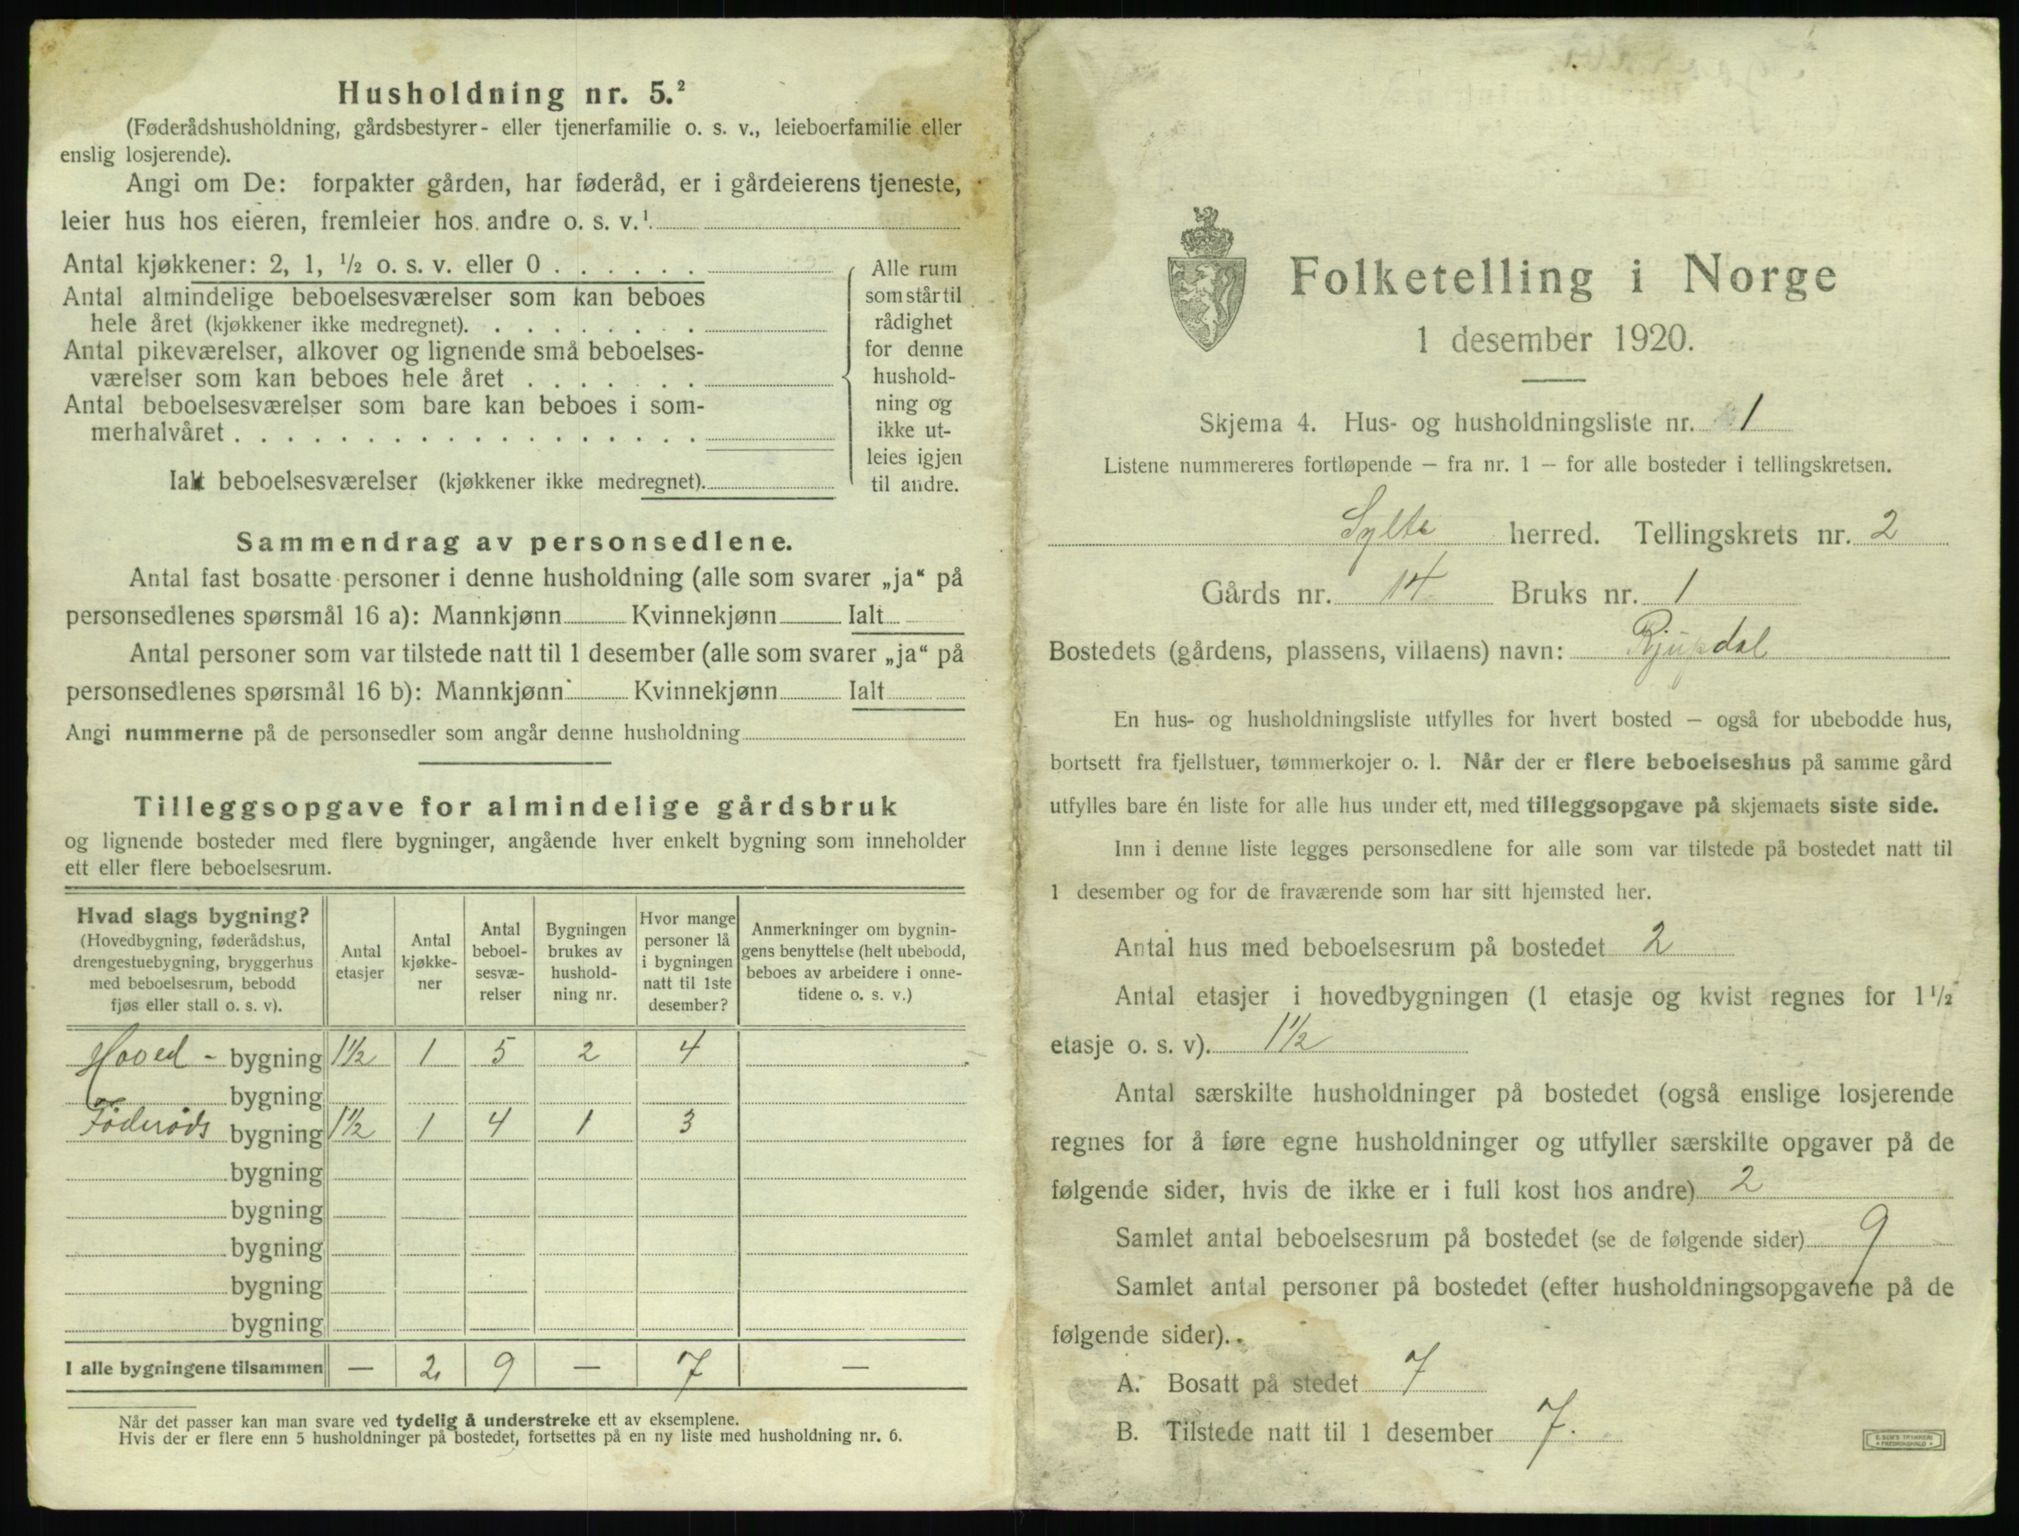 Husholdning nr. 5.²
(Føderådshusholdning, gårdsbestyrer- eller tjenerfamilie o. s. v., leieboerfamilie eller
enslig losjerende).
Angi om De: forpakter gården, har føderåd, er i gårdeierens tjeneste,
leier hus hos eieren, fremleier hos andre o. s. v.¹
Antal kjøkkener: 2, 1, ½ o. s. v. eller 0
Antal almindelige beboelsesværelser som kan beboes
hele året (kjøkkener ikke medregnet).
Antal pikeværelser, alkover og lignende små beboelses-
værelser som kan beboes hele året
Antal beboelsesværelser som bare kan beboes i som-
merhalvåret
Ialt beboelsesværelser (kjøkkener ikke medregnet).
Alle rum
som står til
rådighet
for denne
hushold-
ning og
ikke ut-
leies igjen
til andre.
Sammendrag av personsedlene.
Antal fast bosatte personer i denne husholdning (alle som svarer „ja“ på
personsedlenes spørsmål 16 a): Mannkjønn Kvinnekjønn Ialt
Antal personer som var tilstede natt til 1 desember (alle som svarer „ja“ på
personsedlenes spørsmål 16 b): Mannkjønn Kvinnekjønn Ialt
Angi nummerne på de personsedler som angår denne husholdning
Tilleggsopgave for almindelige gårdsbruk
og lignende bosteder med flere bygninger, angående hver enkelt bygning som inneholder
ett eller flere beboelsesrum.
Hvad slags bygning?
(Hovedbygning, føderådshus,
drengestuebygning, bryggerhus
med beboelsesrum, bebodd
fjøs eller stall o. s. v).
Antal
etasjer
Antal
kjøkke-
ner
Antal
beboel-
sesvæ-
relser
Bygningen
brukes av
hushold-
ning nr.
Hvor mange
personer lå
i bygningen
natt til 1ste
desember?
Anmerkninger om bygnin-
gens benyttelse (helt ubebodd,
beboes av arbeidere i onne-
tidene o. s. v.)
Hoved - bygning 1½ 1 5 2 4
bygning
Føderåds bygning 1½ 1 4 1 3
bygning
bygning
bygning
bygning
bygning
I alle bygningene tilsammen — 2 9 — 7 —
Når det passer kan man svare ved tydelig å understreke ett av eksemplene.
Hvis der er flere enn 5 husholdninger på bostedet, fortsettes på en ny liste med husholdning nr. 6.
Folketelling i Norge
1 desember 1920.
Skjema 4. Hus- og husholdningsliste nr. 1
Listene nummereres fortløpende – fra nr. 1 – for alle bosteder i tellingskretsen.
Sylte herred. Tellingskrets nr. 2
Gårds nr. 14 Bruks nr. 1
Bostedets (gårdens, plassens, villaens) navn: Rjupdal
En hus- og husholdningsliste utfylles for hvert bosted – også for ubebodde hus,
bortsett fra fjellstuer, tømmerkojer o. l. Når der er flere beboelseshus på samme gård
utfylles bare én liste for alle hus under ett, med tilleggsopgave på skjemaets siste side.
Inn i denne liste legges personsedlene for alle som var tilstede på bostedet natt til
1 desember og for de fraværende som har sitt hjemsted her.
Antal hus med beboelsesrum på bostedet 2
Antal etasjer i hovedbygningen (1 etasje og kvist regnes for 1½
etasje o. s. v). 1½
Antal særskilte husholdninger på bostedet (også enslige losjerende
regnes for å føre egne husholdninger og utfyller særskilte opgaver på de
følgende sider, hvis de ikke er i full kost hos andre) 2
Samlet antal beboelsesrum på bostedet (se de følgende sider) 9
Samlet antal personer på bostedet (efter husholdningsopgavene på de
følgende sider).
A. Bosatt på stedet 7
B. Tilstede natt til 1 desember 7.